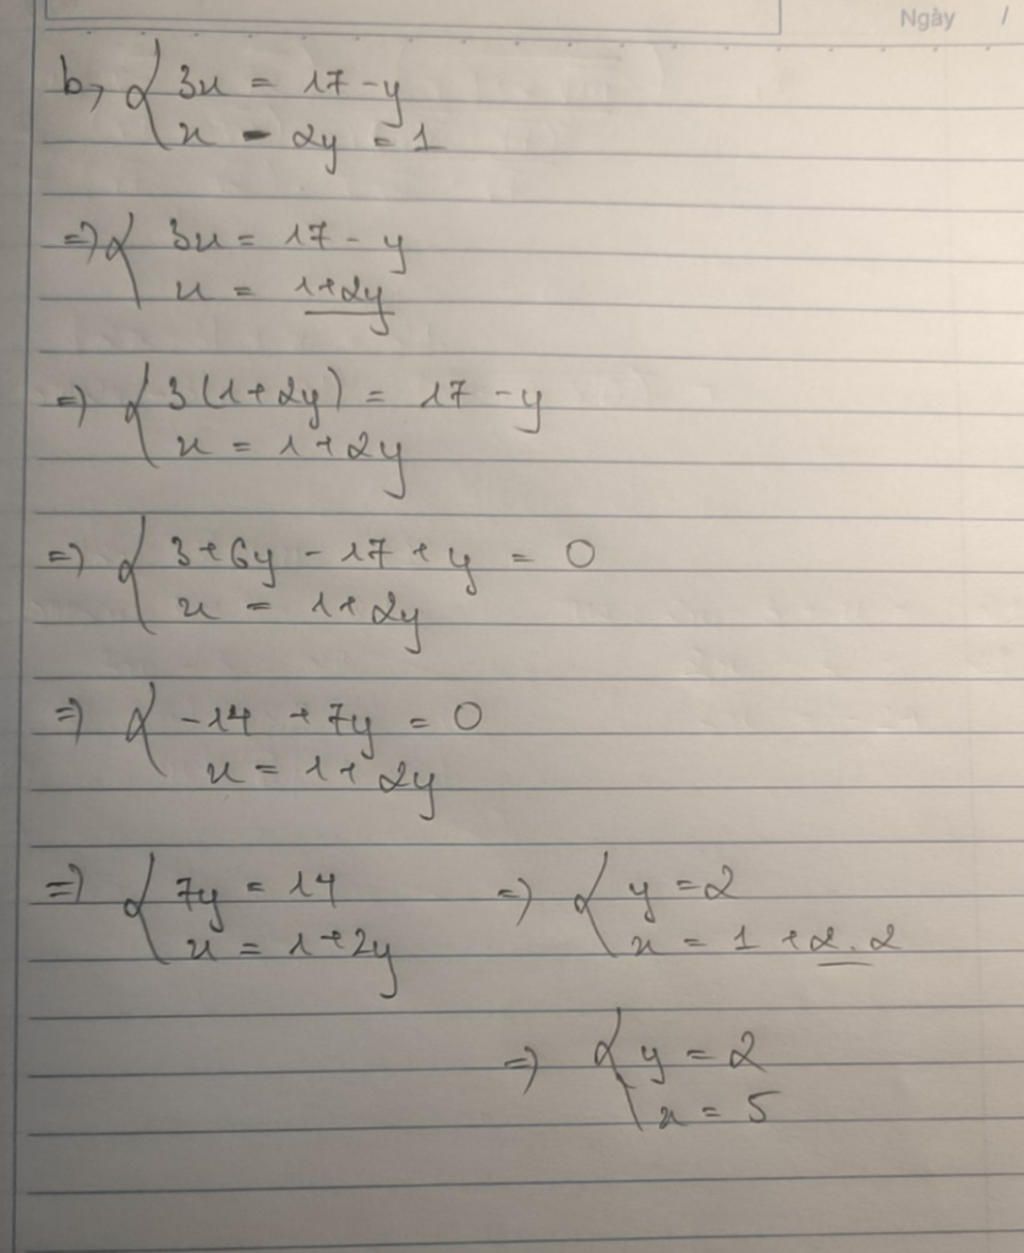 Ngày /
b, { 3x = 17 - y
x - 2y = 1
=> { 3x = 17 - y
x = 1+2y
=> { 3(1+2y) = 17 - y
x = 1+2y
=> { 3+6y - 17 + y = 0
x = 1+2y
=> { -14 + 7y = 0
x = 1+2y
=> { 7y = 14 => { y = 2
x = 1+2y x = 1 + 2.2
=> { y = 2
x = 5